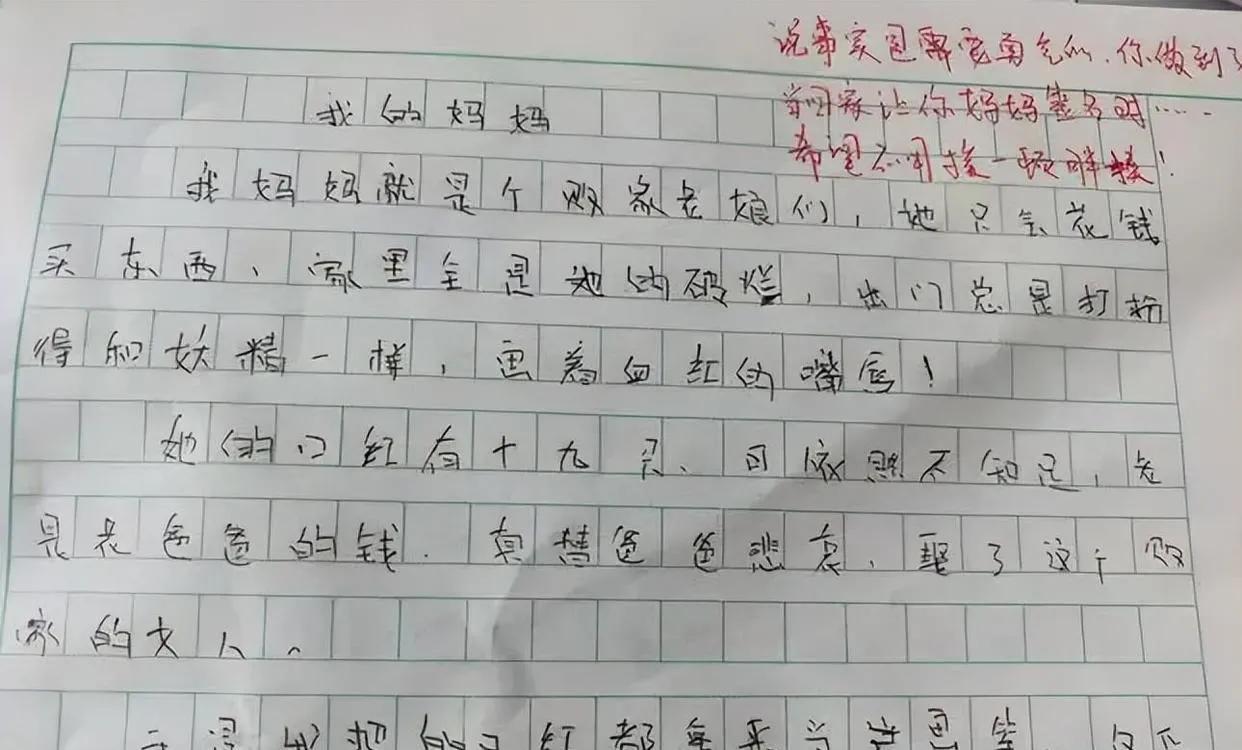 说事实是需要勇气的，你做到了
当回家让你妈妈签名时……
希望不用挨一顿胖揍！
我的妈妈
我妈妈就是个败家老娘们，她只会花钱
买东西、家里全是她的破烂，出门总是打扮
得和妖精一样，画着血红的嘴唇！
她的口红有十九只、可依然不知足，老
是花爸爸的钱．真替爸爸悲哀．娶了这个败
家的女人。
我把的口红都拿来当画笔